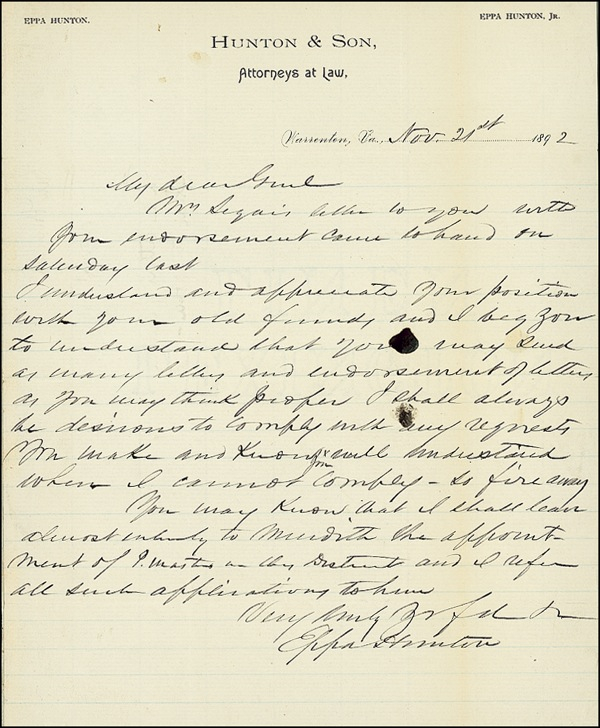 EPPA HUNTON.
EPPA HUNTON, JR.
HUNTON & SON,
Attorneys at Law,
Warrenton, Va., Nov. 21st 1892
My dear Genl
Mrs letter to you with
your endorsement came to hand on
saturday last
I understand and appreciate your position
with your old friends and I beg you
to understand that you may send
as many letters and endorsement of letters
as you may think proper I shall always
be desirous to comply with any requests
you make and know you will understand
when I cannot comply - so fire away
You may know that I shall leave
almost entirely to Meredith the appoint-
ment of P. masters in this District and I refer
all such applications to him
Very truly Yr fd
Eppa Hunton